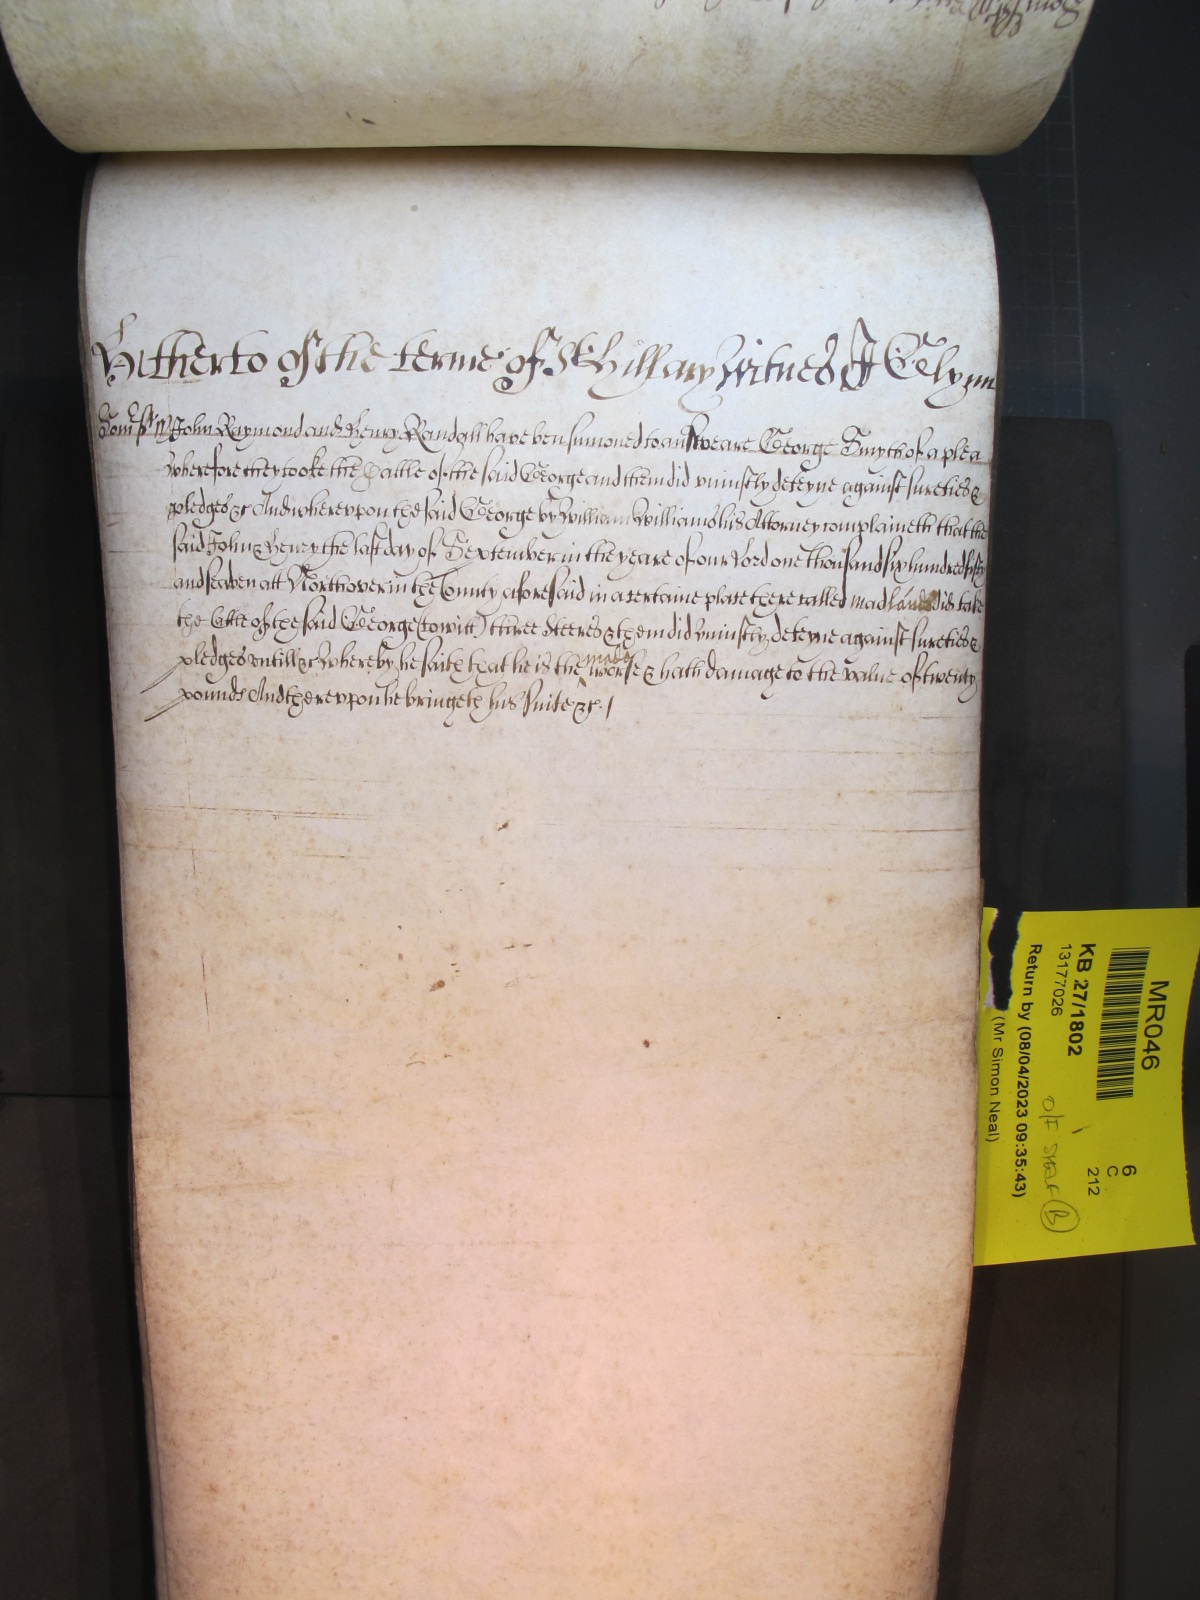 Hitherto of the terme of St Hillary Witnes J Glynn
Som̃sett John Raymond and Henry Randall have ben sumoned to answeare George Smyth of a plea
Wherefore they tooke the Cattle of the said George and them did uniustly deteyne against sureties &
pledges &c And whereupon the said George by William Williams his Attorney complaineth that the
said John & Henry the last day of September in the yeare of our Lord one thousand six hundred fifty
and seaven att Northover in the County aforesaid in a certaine place there called madlands did take
the Cattle of the said George (to witt) three Steeres & them did uniustly deteyne against sureties &
pledges untill &c Whereby he saith that he is the made worse & hath damage to the value of twenty
pounds And thereupon he bringeth his suite &c.
MR046
KB 27/1802
13177026
Return by (08/04/2023 09:35:43)
(Mr Simon Neal)
6
C
212
O/F SHELF B